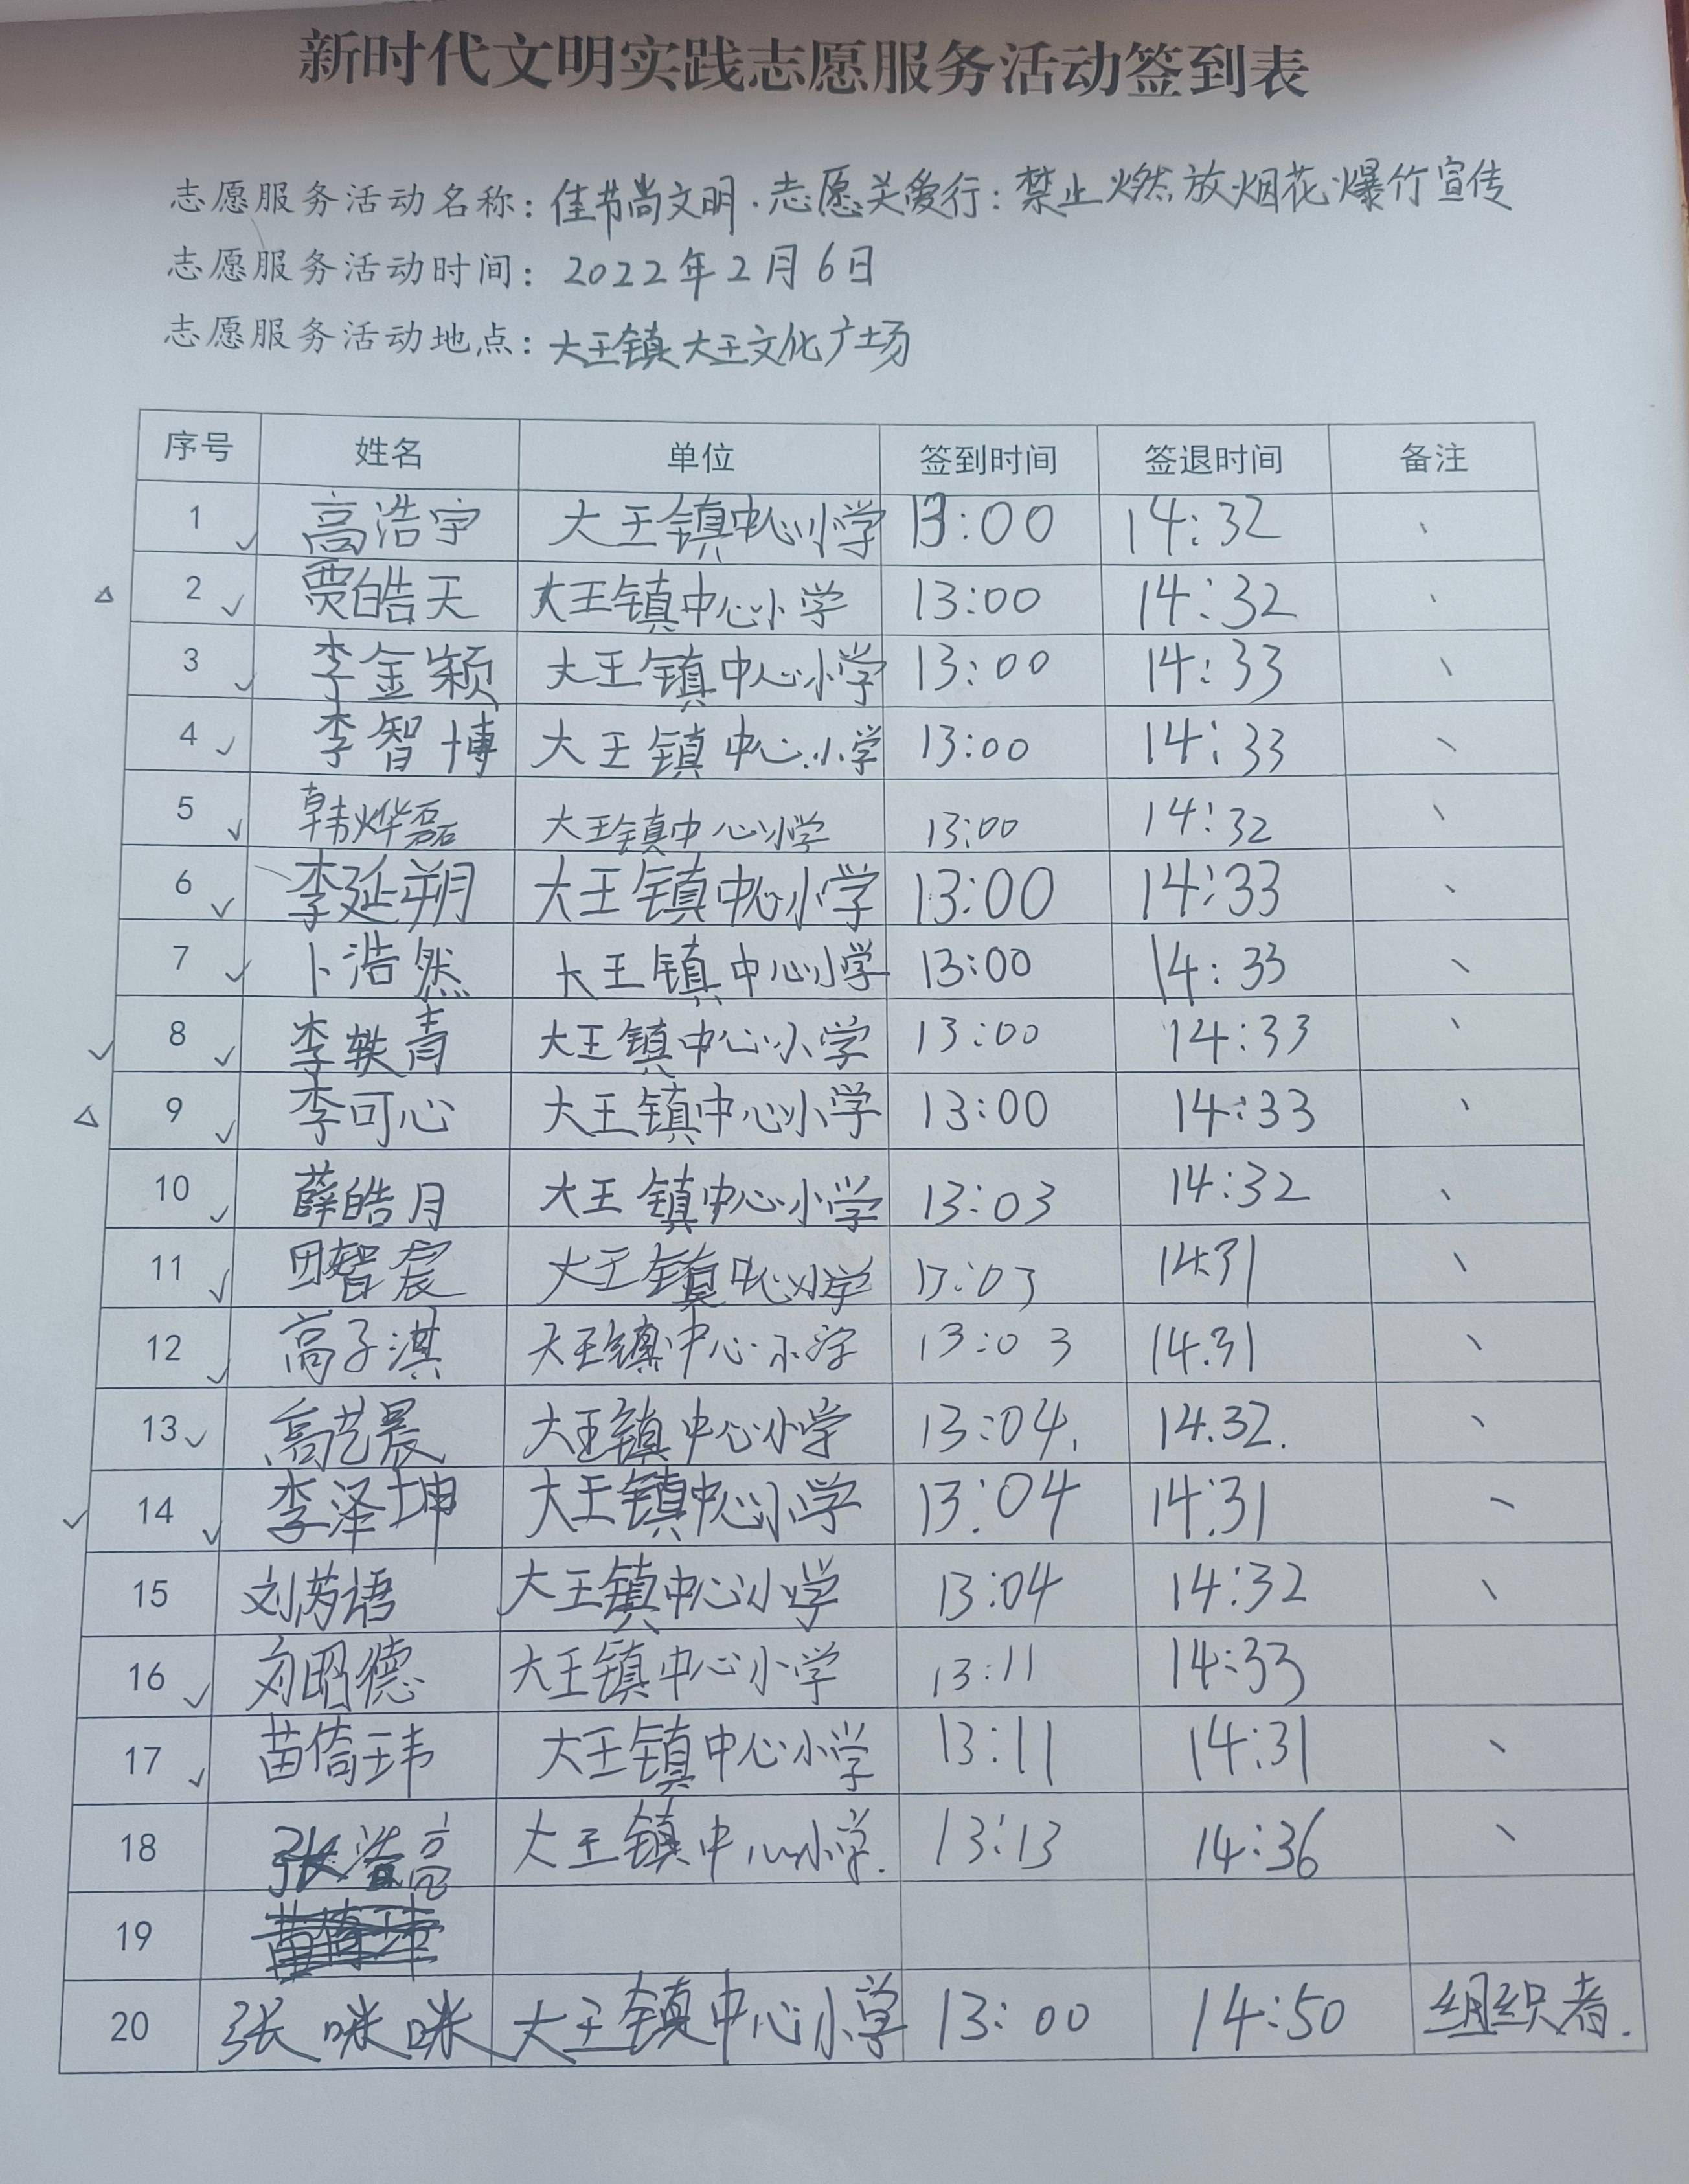 新时代文明实践志愿服务活动签到表
志愿服务活动名称：佳节尚文明·志愿关爱行：禁止燃放烟花爆竹宣传
志愿服务活动时间：2022年2月6日
志愿服务活动地点：大王镇大王文化广场
序号 姓名 单位 签到时间 签退时间 备注
1 高浩宇 大王镇中心小学 13:00 14:32 、
2 贾皓天 大王镇中心小学 13:00 14:32 、
3 李金颖 大王镇中心小学 13:00 14:33 、
4 李智博 大王镇中心小学 13:00 14:33 、
5 韩烨磊 大王镇中心小学 13:00 14:32 、
6 李延朔 大王镇中心小学 13:00 14:33 、
7 卜浩然 大王镇中心小学 13:00 14:33 、
8 李轶青 大王镇中心小学 13:00 14:33 、
9 李可心 大王镇中心小学 13:00 14:33 、
10 薛皓月 大王镇中心小学 13:03 14:32 、
11 田智宸 大王镇中心小学 13:03 14:31 、
12 高子淇 大王镇中心小学 13:03 14.31 、
13 高艺晨 大王镇中心小学 13:04. 14.32. 、
14 李泽坤 大王镇中心小学 13:04 14:31 、
15 刘芮语 大王镇中心小学 13:04 14:32 、
16 刘昭德 大王镇中心小学 13:11 14:33
17 苗倚玮 大王镇中心小学 13:11 14:31 、
18 张浩亮 大王镇中心小学. 13:13 14:36 、
19
20 张咪咪 大王镇中心小学 13:00 14:50 组织者.